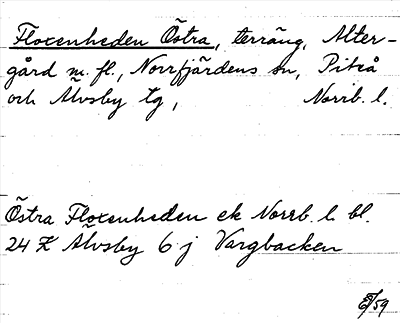 Floxenheden Östra, terräng, Alter-
gård m. fl., Norrfjärdens sn, Piteå
och Älvsby tg, Norrb. l.
Östra Floxenheden ek Norrb. l bl.
24 K Älvsby 6 j Vargbacken
/59